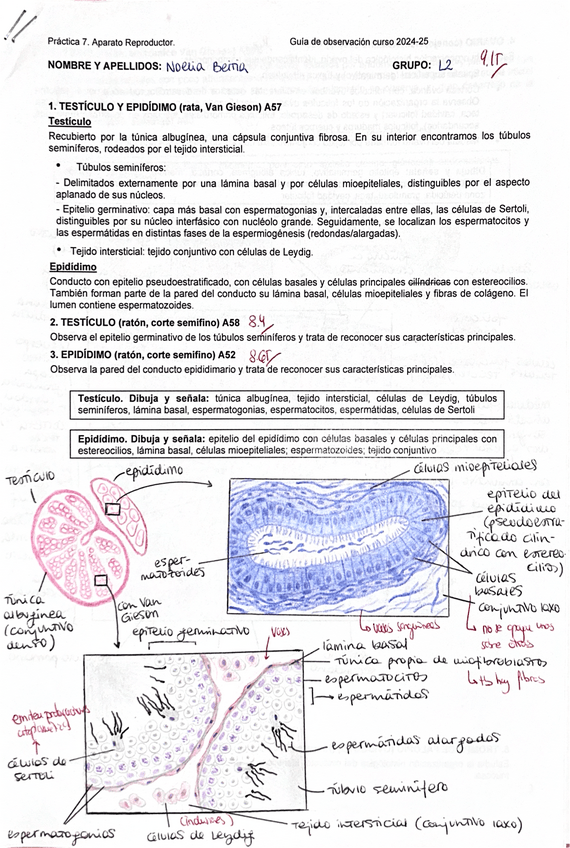 Práctica 7. Aparato Reproductor. Guía de observación curso 2024-25
NOMBRE Y APELLIDOS: Noelia Beiria GRUPO: L2
1. TESTÍCULO Y EPIDÍDIMO (rata, Van Gieson) A57
Testículo
Recubierto por la túnica albugínea, una cápsula conjuntiva fibrosa. En su interior encontramos los túbulos
seminíferos, rodeados por el tejido intersticial.
• Túbulos seminíferos:
- Delimitados externamente por una lámina basal y por células mioepiteliales, distinguibles por el aspecto
aplanado de sus núcleos.
- Epitelio germinativo: capa más basal con espermatogonias y, intercaladas entre ellas, las células de Sertoli,
distinguibles por su núcleo interfásico con nucléolo grande. Seguidamente, se localizan los espermatocitos
y las espermátidas en distintas fases de la espermiogénesis (redondas/alargadas).
• Tejido intersticial: tejido conjuntivo con células de Leydig.
Epidídimo
Conducto con epitelio pseudoestratificado, con células basales y células principales cilíndricas con estereocilios.
También forman parte de la pared del conducto su lámina basal, células mioepiteliales y fibras de colágeno. El
lumen contiene espermatozoides.
2. TESTÍCULO (ratón, corte semifino) A58 8.4
Observa el epitelio germinativo de los túbulos seminíferos y trata de reconocer sus características principales.
3. EPIDÍDIMO (ratón, corte semifino) A52
Observa la pared del conducto epididimario y trata de reconocer sus características principales.
Testículo. Dibuja y señala: túnica albugínea, tejido intersticial, células de Leydig, túbulos
seminíferos, lámina basal, espermatogonias, espermatocitos, espermátidas, células de Sertoli
Epidídimo. Dibuja y señala: epitelio del epidídimo con células basales y células principales con
estereocilios, lámina basal, células mioepiteliales; espermatozoides; tejido conjuntivo
testículo
epidídimo
células mioepiteliales
epitelio del
epidídimo
(pseudoestra-
tificado cilín-
drico con estereo-
cilios)
esper-
matozoides
células
basales
túnica
albugínea
(conjuntivo
denso)
con Van
Gieson
conjuntivo laxo
vasos sanguíneos
no se apoya unos
sobre otros
epitelio germinativo
vasos
lámina basal
túnica propia de miofibroblastos
hay fibras
espermatocitos
espermátidas
emiten prolongaciones
citoplasmáticas
espermátidas alargadas
células de
sertoli
túbulo seminífero
espermatogonias
células de Leydig
tejido intersticial (conjuntivo laxo)